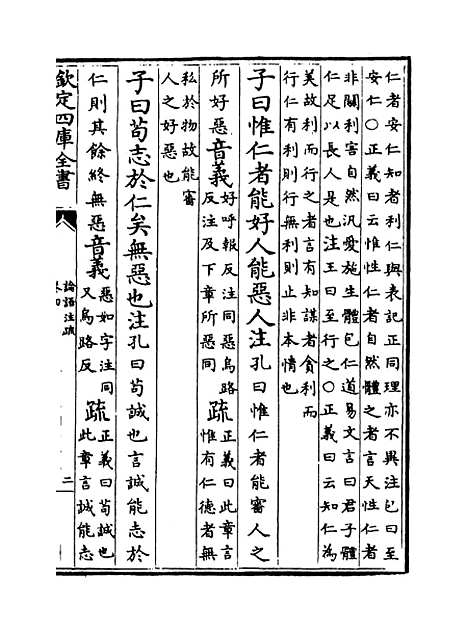 仁者安仁知者利仁與表記正同理亦不異注包曰至
安仁○正義曰云惟性仁者自然體之者言天性仁者
非關利害自然汎愛施生體包仁道易文言曰君子體
仁足以長人是也注王曰至行之○正義曰云知仁為
美故利而行之者言有知謀者貪利而
行仁有利則行無利則止非本情也
子曰惟仁者能好人能惡人注孔曰惟仁者能審人之
所好惡音義好呼報反注同惡烏路反注及下章所惡同疏正義曰此章言惟有仁德者無
私於物故能審
人之好惡也
子曰苟志於仁矣無惡也注孔曰苟誠也言誠能志於
仁則其餘終無惡音義惡如字注同又烏路反疏正義曰苟誠也此章言誠能志
欽定四庫全書
論語注疏
二